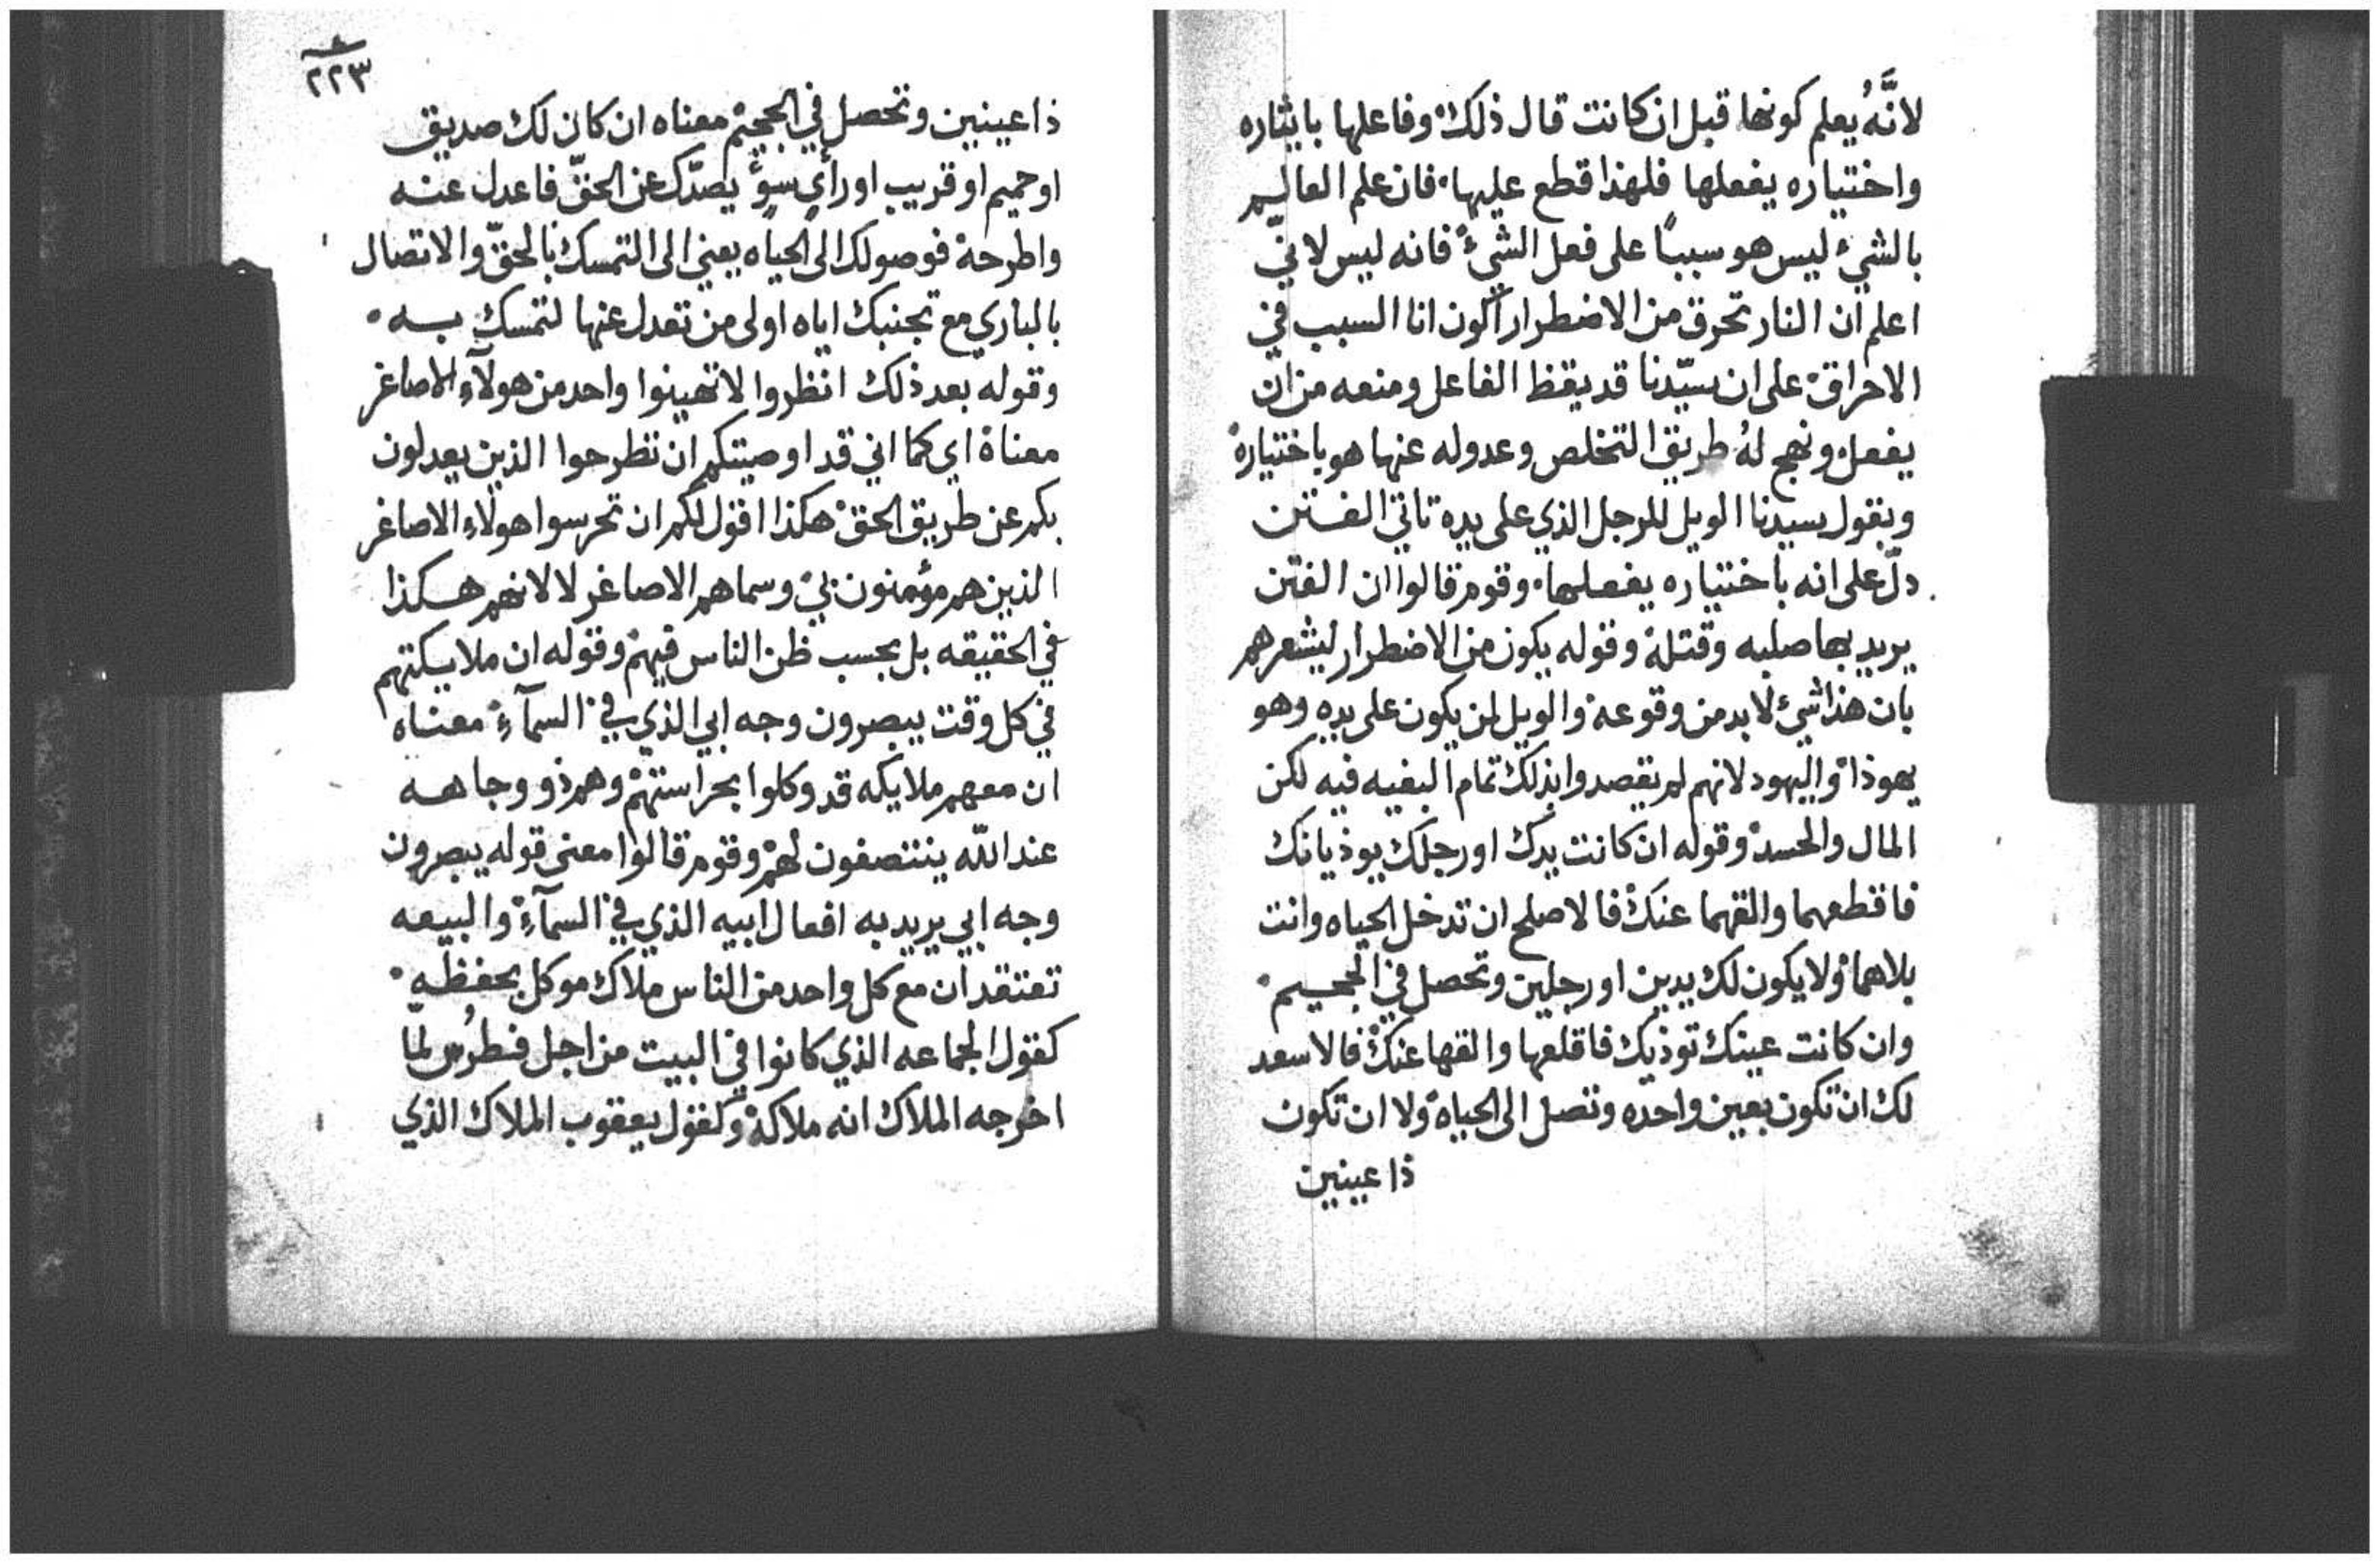 لانَّهُ يعلم كونها قبل ان كانت قال ذلك وفاعلها بايثاره
واختياره يفعلها فلهذا قطع عليها فان علم العالم
بالشيء ليس هو سببًا على فعل الشيء فانه ليس لاني
اعلم ان النار تحرق من الاضطرار اكون انا السبب في
الاحراق على ان سيّدنا قد يقظ الفاعل ومنعه من ان
يفعل ونهج لهُ طريق التخلص وعدوله عنها هو باختياره
وبقول سيدنا الويل للرجل الذي على يده تاتي الفتن
دلّ على انه باختياره يفعلها وقوم قالوا ان الفتن
يريد بها صلبه وقتله وقوله يكون من الاضطرار ليشعرهم
بان هذا شيء لا بد من وقوعه والويل لمن يكون على يده وهو
يهوذا واليهود لانهم لم يقصدوا بذلك تمام البغيه فيه لكن
المال والحسد وقوله ان كانت يدك او رجلك يوذيانك
فاقطعهما والقهما عنك فالاصلح ان تدخل الحياه وانت
بلاهما ولا يكون لك يدين او رجلين وتحصل في الجحيم
وان كانت عينك توذيك فاقلعها والقها عنك فالاسعد
لك ان تكون بعين واحده وتصل الى الحياه ولا ان تكون
ذا عينين
٢٢٣
ذا عينين وتحصل في الجحيم معناه ان كان لك صديق
او حميم او قريب او رأي سوٍّ يصدّك عن الحقّ فاعدل عنه
واطرحه فوصولك الى الحياه يعني الى التمسك بالحقّ والاتصال
بالباري مع تجنبك اياه اولى من تعدل عنها لتمسك به
وقوله بعد ذلك انظروا لا تهينوا واحد من هولآءِ الاصاغر
معناه اي كما اني قد اوصيتكم ان تطرحوا الذين يعدلون
بكم عن طريق الحق هكذا اقول لكم ان تحرسوا هولاء الاصاغر
الذين هم مؤمنون بي وسماهم الاصاغر لا لانهم هكذا
في الحقيقه بل بحسب ظن الناس فيهم وقوله ان ملايكتهم
في كل وقت يبصرون وجه ابي الذي في السمآءِ معناه
ان معهم ملايكه قد وكلوا بحراستهم وهم ذو وجاهه
عند اللّه ينتصفون لهم وقوم قالوا معنى قوله يبصرون
وجه ابي يريد به افعال ابيه الذي في السمآءِ والبيعه
تعتقد ان مع كل واحد من الناس ملاك موكل بحفظه
كقول الجماعه الذي كانوا في البيت من اجل فطرُس لما
اخرجه الملاك انه ملاكه وكقول يعقوب الملاك الذي